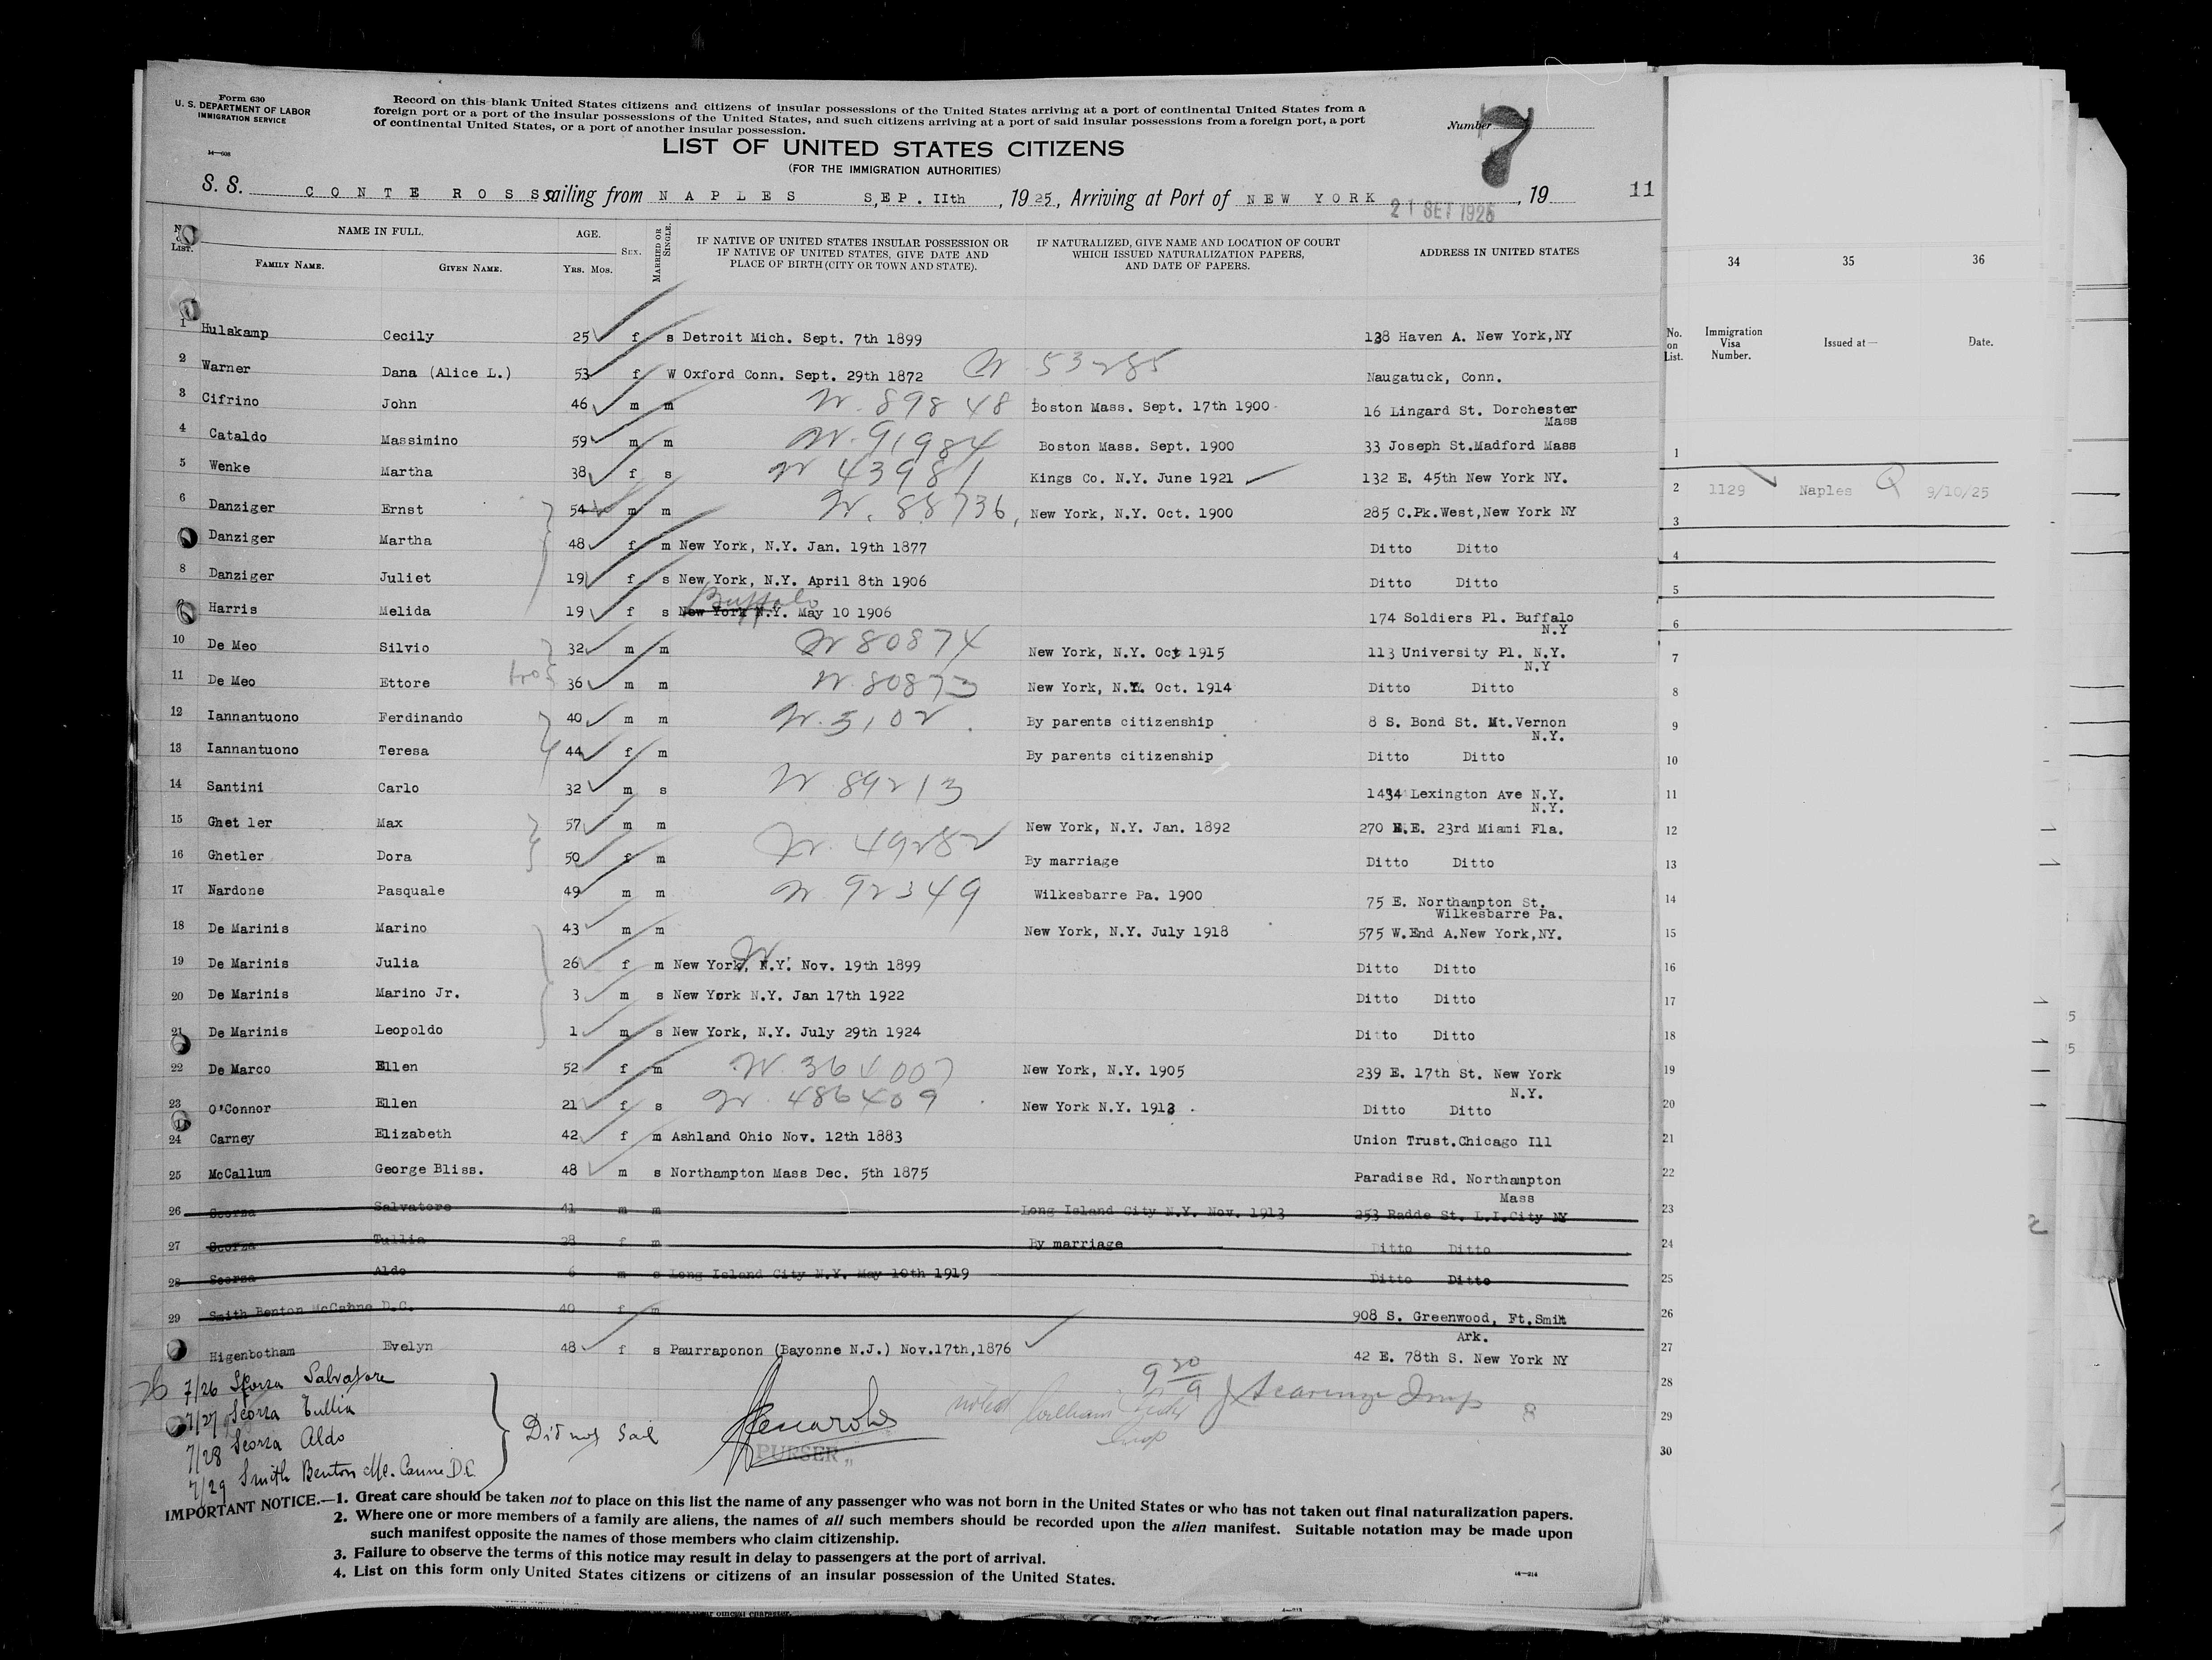 Form 630
U. S. DEPARTMENT OF LABOR
IMMIGRATION SERVICE
14—608
Record on this blank United States citizens and citizens of insular possessions of the United States arriving at a port of continental United States from a
foreign port or a port of the insular possessions of the United States, and such citizens arriving at a port of said insular possessions from a foreign port, a port
of continental United States, or a port of another insular possession.
Number 7
LIST OF UNITED STATES CITIZENS
(FOR THE IMMIGRATION AUTHORITIES)
S. S. CONTE ROSSO sailing from NAPLES SEP. IIth, 1925, Arriving at Port of NEW YORK 21 SET 1925, 19 11
No. on List. NAME IN FULL. AGE. SEX. MARRIED OR SINGLE. IF NATIVE OF UNITED STATES INSULAR POSSESSION OR IF NATIVE OF UNITED STATES, GIVE DATE AND PLACE OF BIRTH (CITY OR TOWN AND STATE). IF NATURALIZED, GIVE NAME AND LOCATION OF COURT WHICH ISSUED NATURALIZATION PAPERS, AND DATE OF PAPERS. ADDRESS IN UNITED STATES
FAMILY NAME. GIVEN NAME. YRS. MOS.
1 Hulskamp Cecily 25 f s Detroit Mich. Sept. 7th 1899 138 Haven A. New York,NY
2 Warner Dana (Alice L.) 53 f W Oxford Conn. Sept. 29th 1872 W. 53285 Naugatuck, Conn.
3 Cifrino John 46 m m W. 89848 Boston Mass. Sept. 17th 1900 16 Lingard St. Dorchester
Mass
4 Cataldo Massimino 59 m m W. 91984 Boston Mass. Sept. 1900 33 Joseph St.Madford Mass
5 Wenke Martha 38 f s W 43981 Kings Co. N.Y. June 1921 132 E. 45th New York NY.
6 Danziger Ernst 54 m m W. 88736, New York, N.Y. Oct. 1900 285 C.Pk.West,New York NY
Danziger Martha 48 f m New York, N.Y. Jan. 19th 1877 Ditto Ditto
8 Danziger Juliet 19 f s New York, N.Y. April 8th 1906 Ditto Ditto
Buffalo
9 Harris Melida 19 f s New York N.Y. May 10 1906 174 Soldiers Pl. Buffalo
N.Y
10 De Meo Silvio 32 m m W 80874 New York, N.Y. Oct 1915 113 University Pl. N.Y.
N.Y
11 De Meo Ettore 36 m m W. 80873 New York, N.Y. Oct. 1914 Ditto Ditto
12 Iannantuono Ferdinando 40 m m W. 3102. By parents citizenship 8 S. Bond St. Mt.Vernon
N.Y.
13 Iannantuono Teresa 44 f m By parents citizenship Ditto Ditto
14 Santini Carlo 32 m s W 89213 1434 Lexington Ave N.Y.
N.Y.
15 Ghet ler Max 57 m m New York, N.Y. Jan. 1892 270 N.E. 23rd Miami Fla.
16 Ghetler Dora 50 f m W. 49282 By marriage Ditto Ditto
17 Nardone Pasquale 49 m m W. 92349 Wilkesbarre Pa. 1900 75 E. Northampton St.
Wilkesbarre Pa.
18 De Marinis Marino 43 m m New York, N.Y. July 1918 575 W.End A.New York,NY.
19 De Marinis Julia 26 f m New York, N.Y. Nov. 19th 1899 Ditto Ditto
20 De Marinis Marino Jr. 3 m s New York N.Y. Jan 17th 1922 Ditto Ditto
21 De Marinis Leopoldo 1 m s New York, N.Y. July 29th 1924 Ditto Ditto
22 De Marco Ellen 52 f m W. 364007 New York, N.Y. 1905 239 E. 17th St. New York
N.Y.
23 O'Connor Ellen 21 f s W. 486409 New York N.Y. 1913. Ditto Ditto
24 Carney Elizabeth 42 f m Ashland Ohio Nov. 12th 1883 Union Trust.Chicago Ill
25 McCallum George Bliss. 48 m s Northampton Mass Dec. 5th 1875 Paradise Rd. Northampton
Mass
26 Scorza Salvatore 41 m m Long Island City N.Y. Nov. 1913 253 Radde St. L.I.City NY
27 Scorza Tullia 28 f m By marriage Ditto Ditto
28 Scorza Aldo 6 m s Long Island City N.Y. May 10th 1919 Ditto Ditto
29 Smith Benton McCanne D.C. 40 f m 908 S. Greenwood, Ft.Smit
Ark.
Higenbotham Evelyn 48 f s Paurraponon (Bayonne N.J.) Nov.17th,1876 42 E. 78th S. New York NY
26 7/26 Scorza Salvatore
7/27 Scorza Tullia
7/28 Scorza Aldo
7/29 Smith Benton Mc. Canne D.C.
Did not sail
PURSER
noted
9 20/9
8
IMPORTANT NOTICE.—1. Great care should be taken not to place on this list the name of any passenger who was not born in the United States or who has not taken out final naturalization papers.
2. Where one or more members of a family are aliens, the names of all such members should be recorded upon the alien manifest. Suitable notation may be made upon
such manifest opposite the names of those members who claim citizenship.
3. Failure to observe the terms of this notice may result in delay to passengers at the port of arrival.
4. List on this form only United States citizens or citizens of an insular possession of the United States.
14—214
34 35 36
No. on List. Immigration Visa Number. Issued at— Date.
1
2 1129 Naples 9/10/25
3
4
5
6
7
8
9
10
11
12
13
14
15
16
17
18
19
20
21
22
23
24
25
26
27
28
29
30